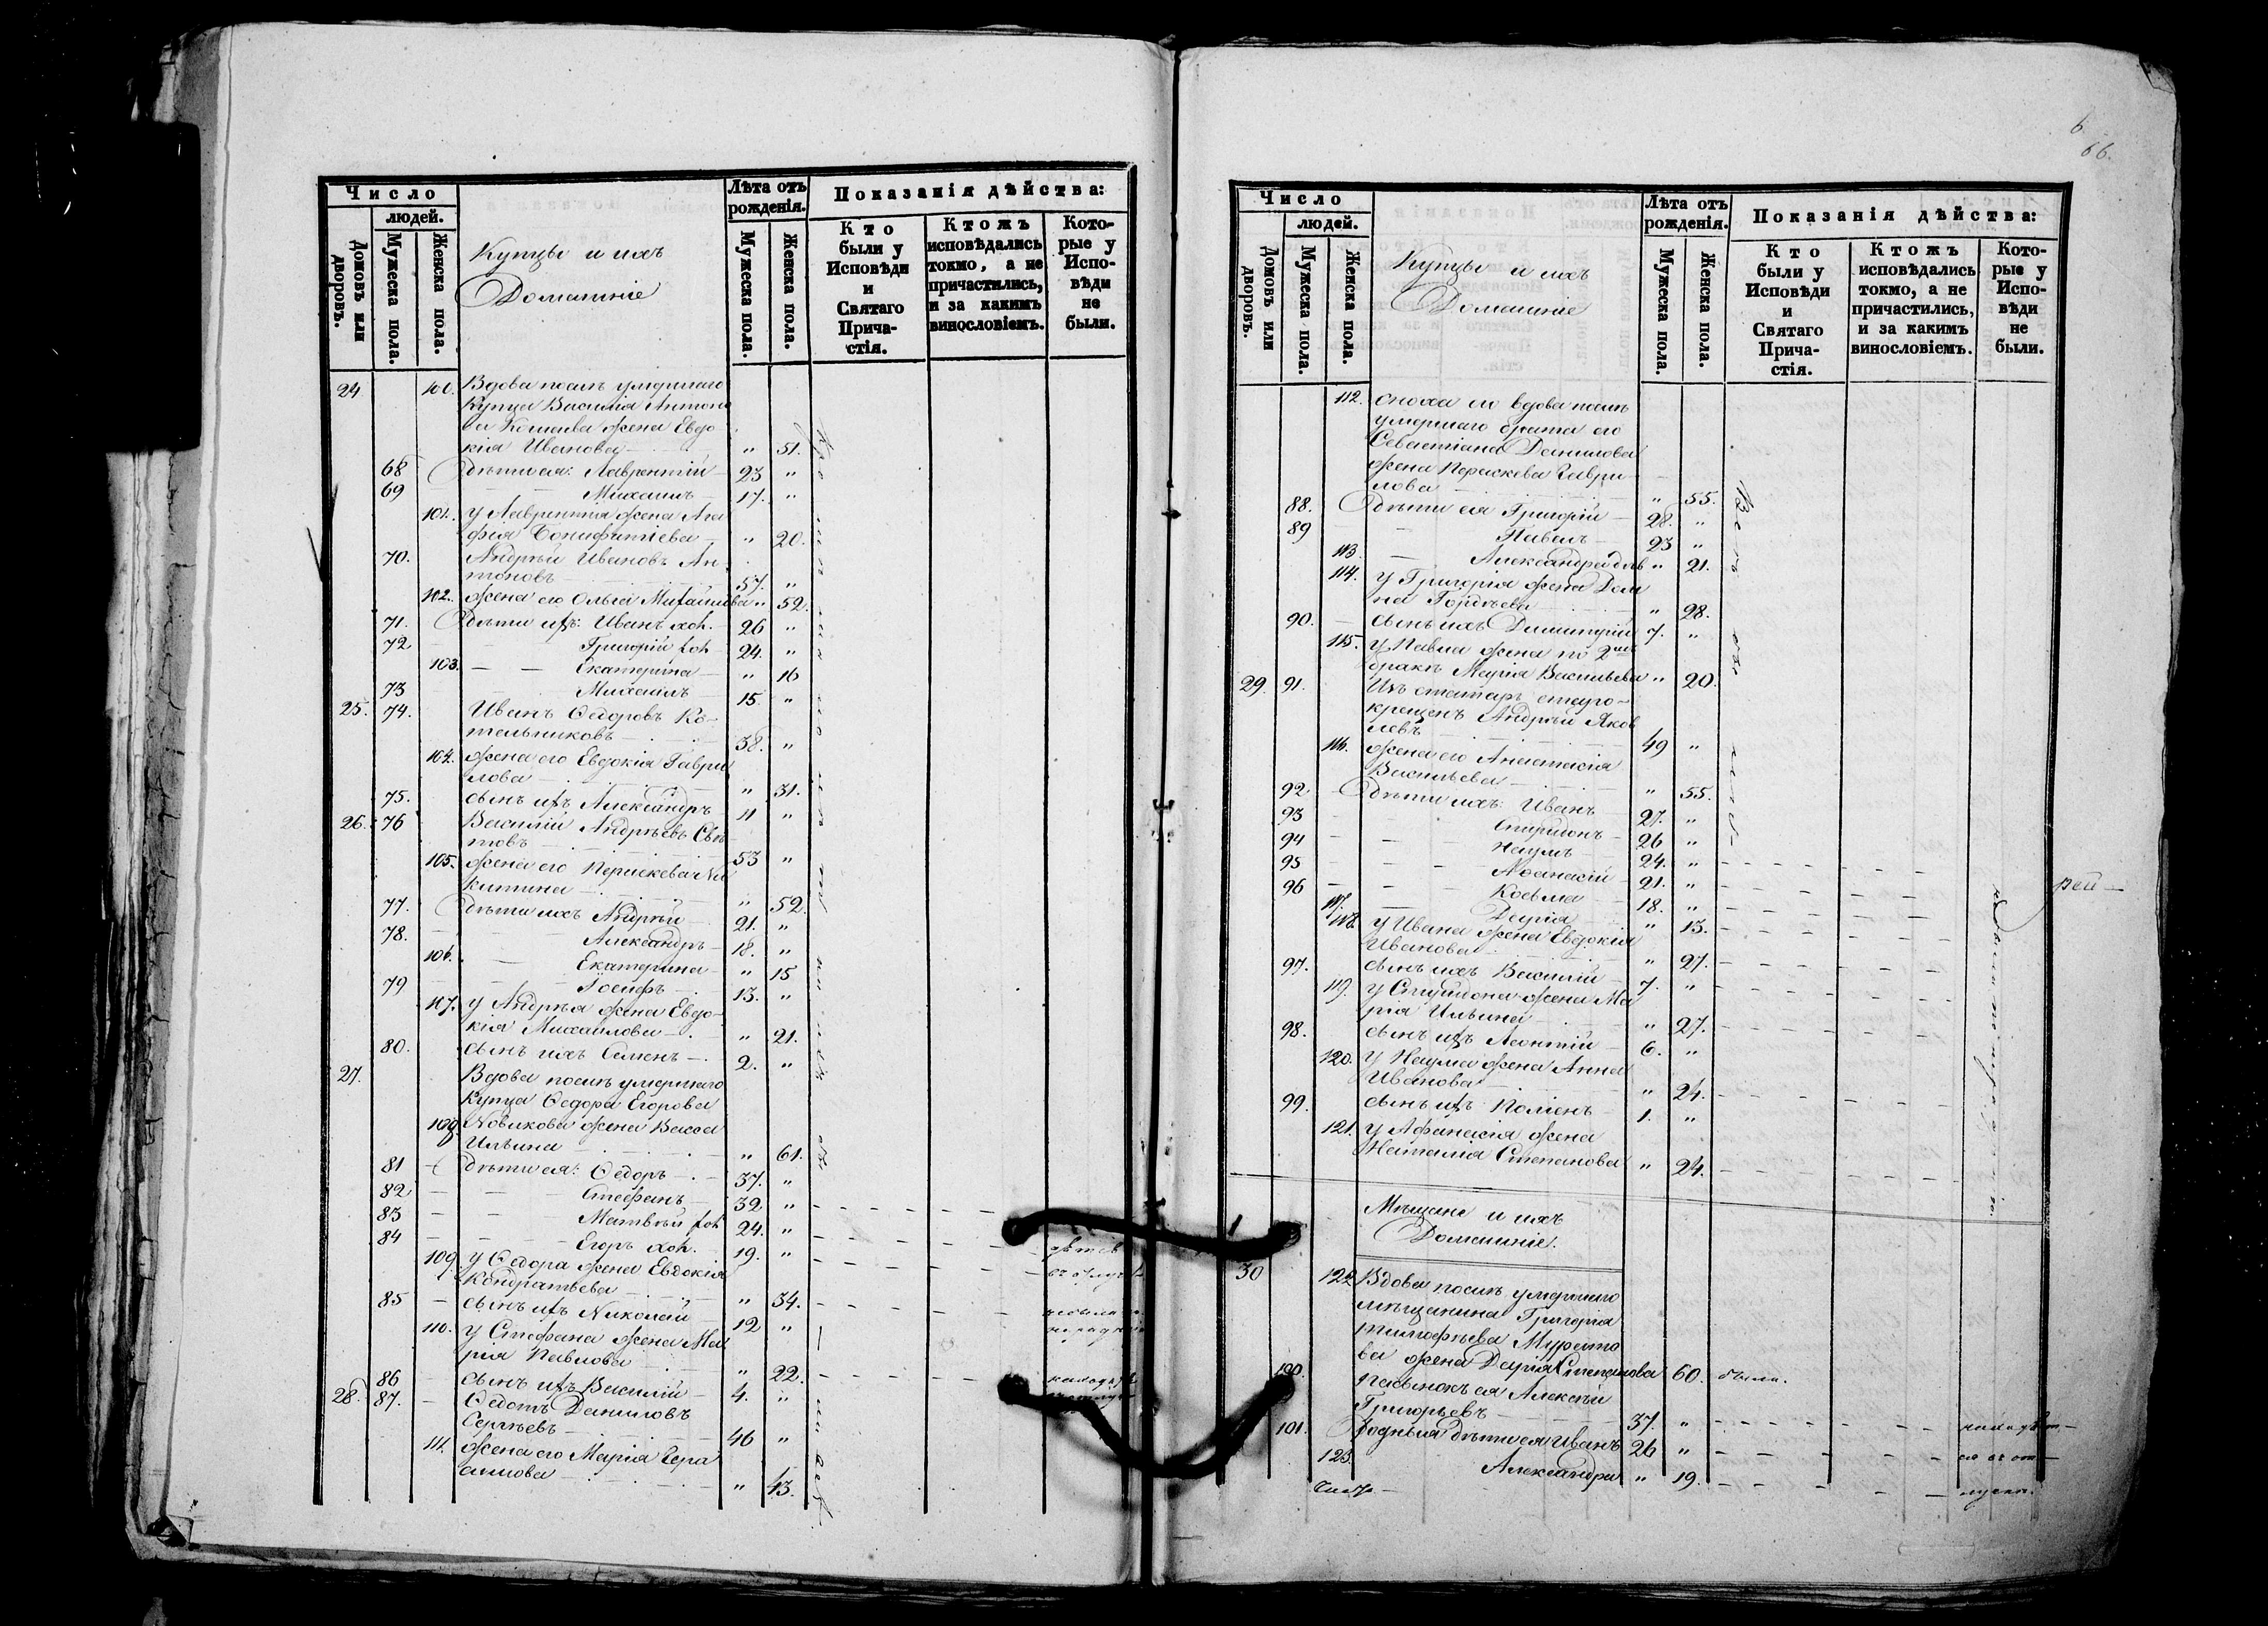 Число
людей.
Домовъ или дворовъ.
Мужеска пола.
Женска пола.
Купцы и ихъ
Домашніе
Лѣта отъ рожденія.
Мужеска пола.
Женска пола.
Показанія дѣйства:
Кто были у Исповѣди и Святаго Причастія.
Ктожъ исповѣдались токмо, а не причастились, и за какимъ винословіемъ.
Которые у Исповѣди не были.
24 100. Вдова послѣ умершаго
Купца Василія Антоно
ва жена Евдо
кія Иванова " 51.
68 Дѣти ея: Лаврентій 23 "
69 Михаилъ 17. "
101. у Лаврентія жена Ага
фія Бонифатіева " 20.
70. Андрей Ивановъ Ан-
тоновъ 57. "
102. жена его Ольга " 52.
71. Дѣти ихъ: Иванъ хол. 26 "
72 Григорій хол 24. "
103. Екатерина " 16
73 Михаилъ 15. "
25. 74. Иванъ Ѳедоровъ Ко-
тельниковъ 38. "
104. жена его Евдокія Гаври
лова " 31.
75. сынъ ихъ Александръ 11 "
26. 76 Василій Андреевъ
товъ 53 "
105. жена его Параскева Ни
китина " 52.
77. Дѣти ихъ Андрей 21. "
78. Александръ 18. "
106. Екатерина " 15
79 Іосифъ 13. "
107. у Андрея жена Евдо-
кія Михайлова " 21.
80. сынъ ихъ Семенъ 2. "
27. Вдова послѣ умершаго
купца Ѳедора Егорова
108. Новикова жена Васса
Ильина " 61.
81 Дѣти ея: Ѳедоръ 37. "
82 Стефанъ 32 "
83 Матвѣй хол 24. "
84 Егоръ хол. 19. "
109. у Ѳедора жена Евдокія
Кондратьева " 34.
85 сынъ ихъ Николай 12 "
110. у Стефана жена Ма
рія Павлова " 22.
86 сынъ ихъ Василій 4. "
28. 87. Ѳедотъ Даниловъ
Сергѣевъ 46 "
111. жена его Марія Гера
симова " 43.
6
66.
Число
людей.
Домовъ или дворовъ.
Мужеска пола.
Женска пола.
Купцы и ихъ
Домашніе
Лѣта отъ рожденія.
Мужеска пола.
Женска пола.
Показанія дѣйства:
Кто были у Исповѣди и Святаго Причастія.
Ктожъ исповѣдались токмо, а не причастились, и за какимъ винословіемъ.
Которые у Исповѣди не были.
112. сноха его вдова послѣ
умершаго брата его
Севастіана Данилова
жена Параскева Гаври
лова " 55.
88. Дѣти ея Григорій 28. "
89 Павелъ 23 "
113. Александра дѣв " 21.
114. у Григорія жена Дом
на Гордѣева " 28.
90. сынъ ихъ Димитрій 7. "
115. у Павла жена по 2мъ
бракѣ Марія Васильева " 20.
29. 91. Изъ татаръ старо-
крещенъ Андрей Яков
левъ 49 "
116. жена его Анастасія
Васильева " 55.
92 Дѣти ихъ: Иванъ 27. "
93 Спиридонъ 26 "
94 Наумъ 24. "
95 Аѳанасій 21. "
96 Косьма 18. "
117. Дарія " 13.
118. у Ивана жена Евдокія
Иванова " 27.
97. сынъ ихъ Василій 7. "
119. у Спиридона жена Ма
рія Ильина " 27.
98. сынъ ихъ Леонтій 6. "
120. у Наума жена Анна
Иванова " 24.
99. сынъ ихъ 1. "
121. у Афанасія жена
Наталія Степанова " 24.
Мѣщане и ихъ
Домашніе.
30 122 Вдова послѣ умершаго
мѣщанина Григорія
Тимофѣева Мурато
ва жена Дарія Степанова " 60. была.
100. пасынокъ ея Алексѣй
Григорьевъ 37. "
101. Родныя дѣти ея Иванъ 26 "
123. Александра " 19.